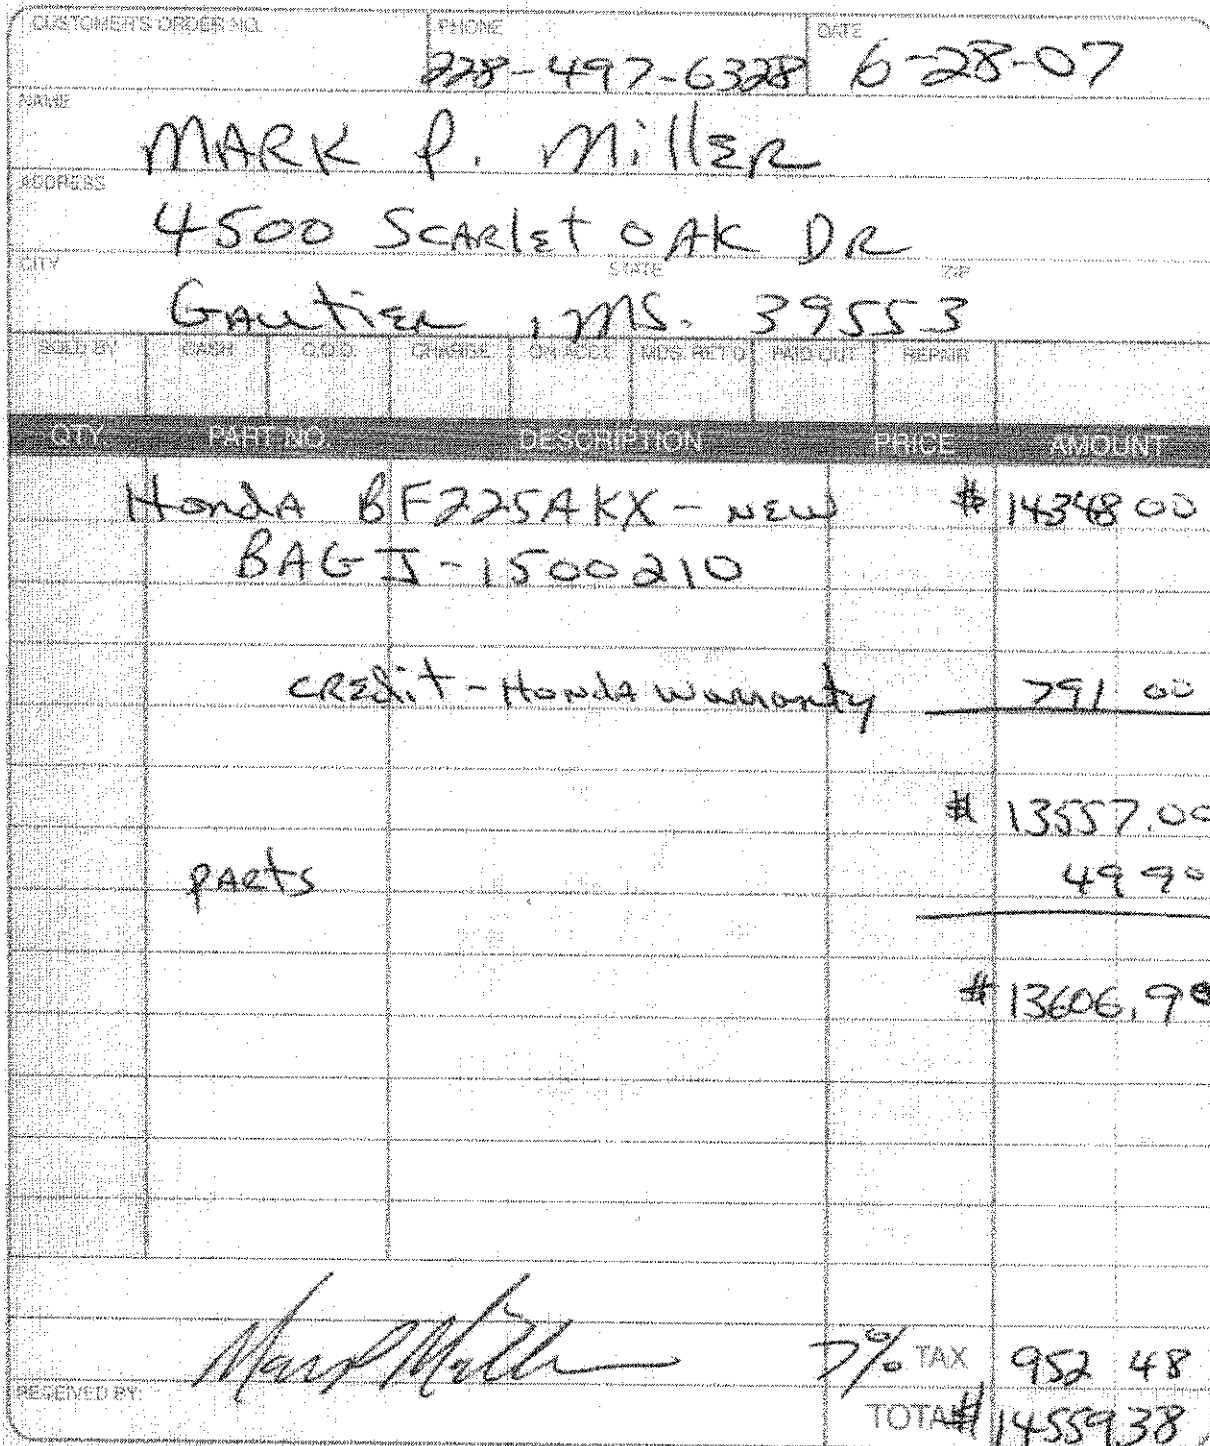 CUSTOMER'S ORDER NO. PHONE DATE
228-497-6328 6-28-07
NAME
MARK P. Miller
ADDRESS
4500 Scarlet OAK DR
CITY STATE ZIP
Gautier, MS. 39553
SOLD BY CASH C.O.D. CHARGE ON ACCT. MDS. RET'D PAID OUT REPAIR
QTY. PART NO. DESCRIPTION PRICE AMOUNT
Honda BF225AKX - new $ 14348 00
BAGJ-1500210
credit - Honda warranty 791 00
$ 13557.00
parts 49 90
$ 13606.90
Mark P Miller 7% TAX 952 48
RECEIVED BY:
TOTAL $ 14559.38